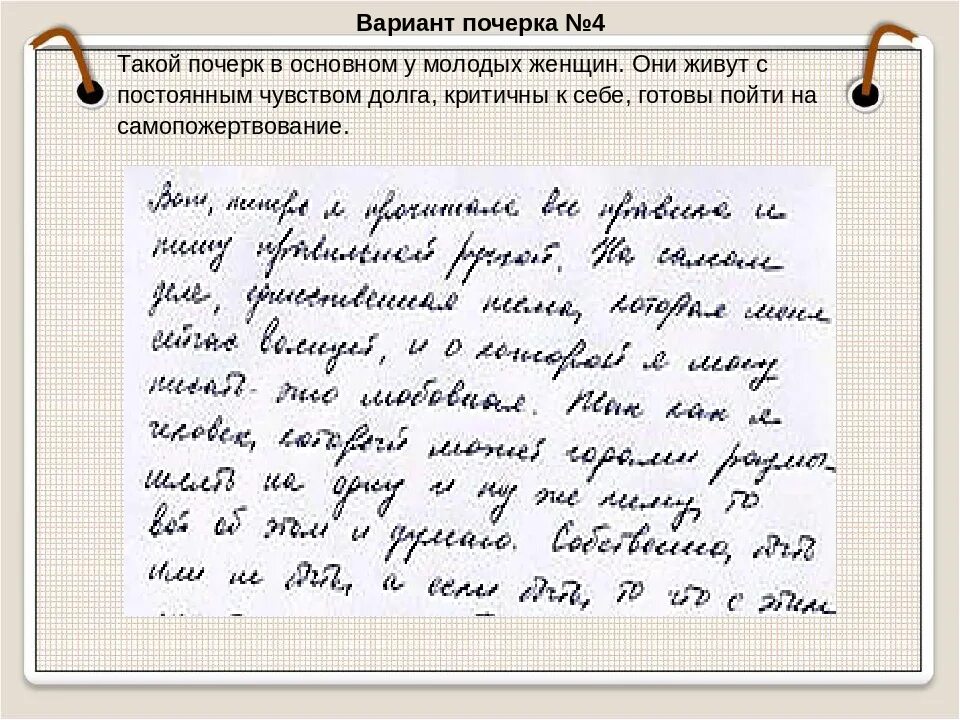 Вариант почерка №4
Такой почерк в основном у молодых женщин. Они живут с
постоянным чувством долга, критичны к себе, готовы пойти на
самопожертвование.
Вот, теперь я прочитала все правила и
пишу правильной ручкой. На самом
деле, единственная тема, которая меня
сейчас волнует, и о которой я могу
писать - это любовная. Так как я
человек, который может годами размы-
шлять на одну и ту же тему, то
вот об этом и думаю. Собственно, быть
или не быть, а если быть, то что с этим